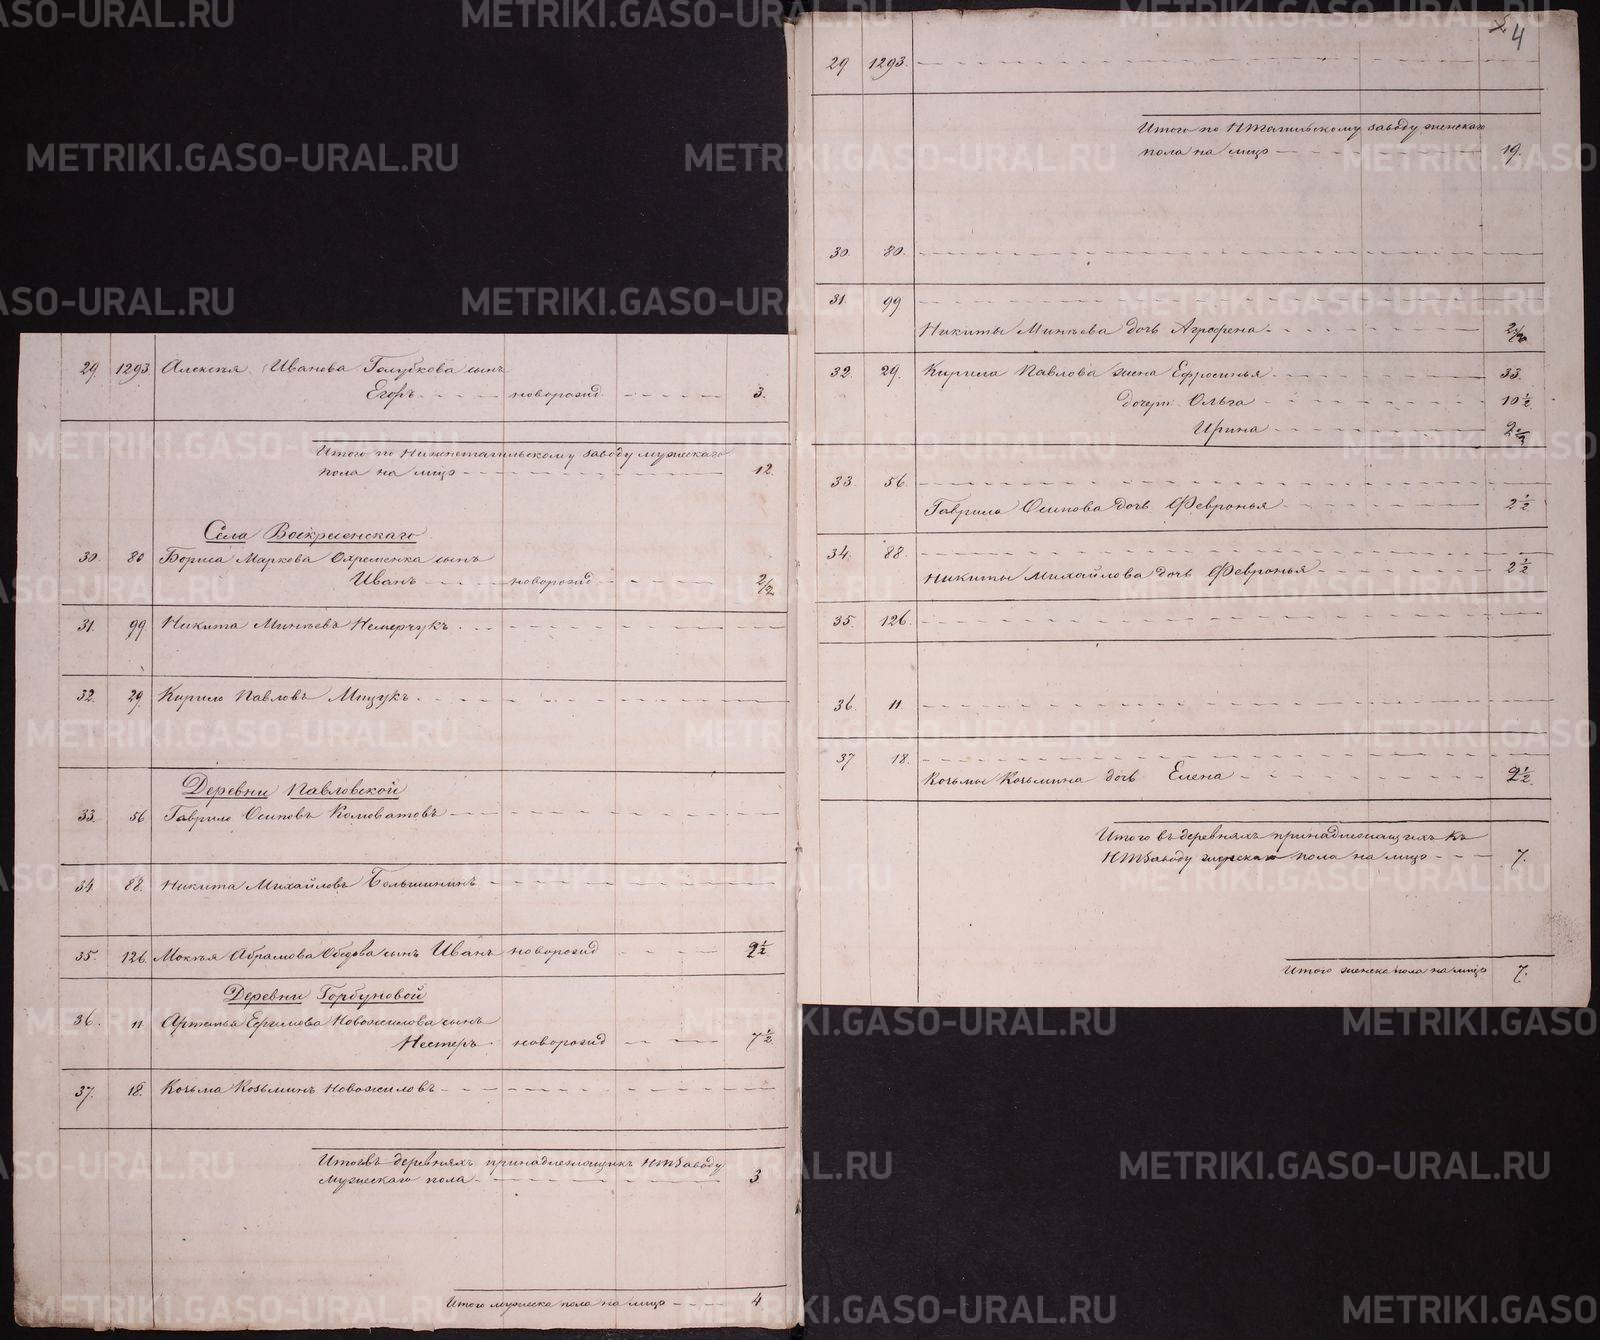 29. 1293. Алексѣя Иванова Голубкова сынъ
Егоръ новорожд 3.
Итого по Нижнетагильскому заводу мужескаго
пола на лицо 12.
Села Воскресенскаго
30. 80 Бориса Маркова Охременка сынъ
Иванъ новорожд 2/2
31. 99. Никита Минѣевъ Немерчукъ
32. 29. Кирило Павловъ Мицукъ
Деревни Павловской
33. 56 Гаврило Осиповъ Коловатовъ
34. 88. Никита Михайловъ Большининъ
35. 126. Мокѣя Абрамова Обедова сынъ Иванъ новорожд 2 1/2
Деревни Горбуновой
36. 11 Артемья Ефимова Новожилова сынъ
Нестеръ новорожд 7 1/2
37. 18. Козьма Козьминъ Новожиловъ
Итого въ деревняхъ принадлежащихъ НТ заводу
мужескаго пола 3
Итого мужеска пола на лицо 4
4
29 1293.
Итого по НТагильскому заводу женскаго
пола на лицо 19.
30. 80.
31. 99
Никиты Минѣева дочь Агрофена
32. 29. Кирила Павлова жена Ефросинья 33.
дочери: Ольга 10 1/2
Ирина 2 1/2
33. 56.
Гаврила Осипова дочь Февронья 2 1/2
34. 88.
Никиты Михайлова дочь Февронья 2 1/2
35. 126.
36. 11.
37 18.
Козьмы Козьмина дочь Елена 2 1/2
Итого въ деревняхъ принадлежащихъ къ
НТ заводу женска пола на лицо 7.
Итого женска пола на лицо 7.
METRIKI.GASO-URAL.RU